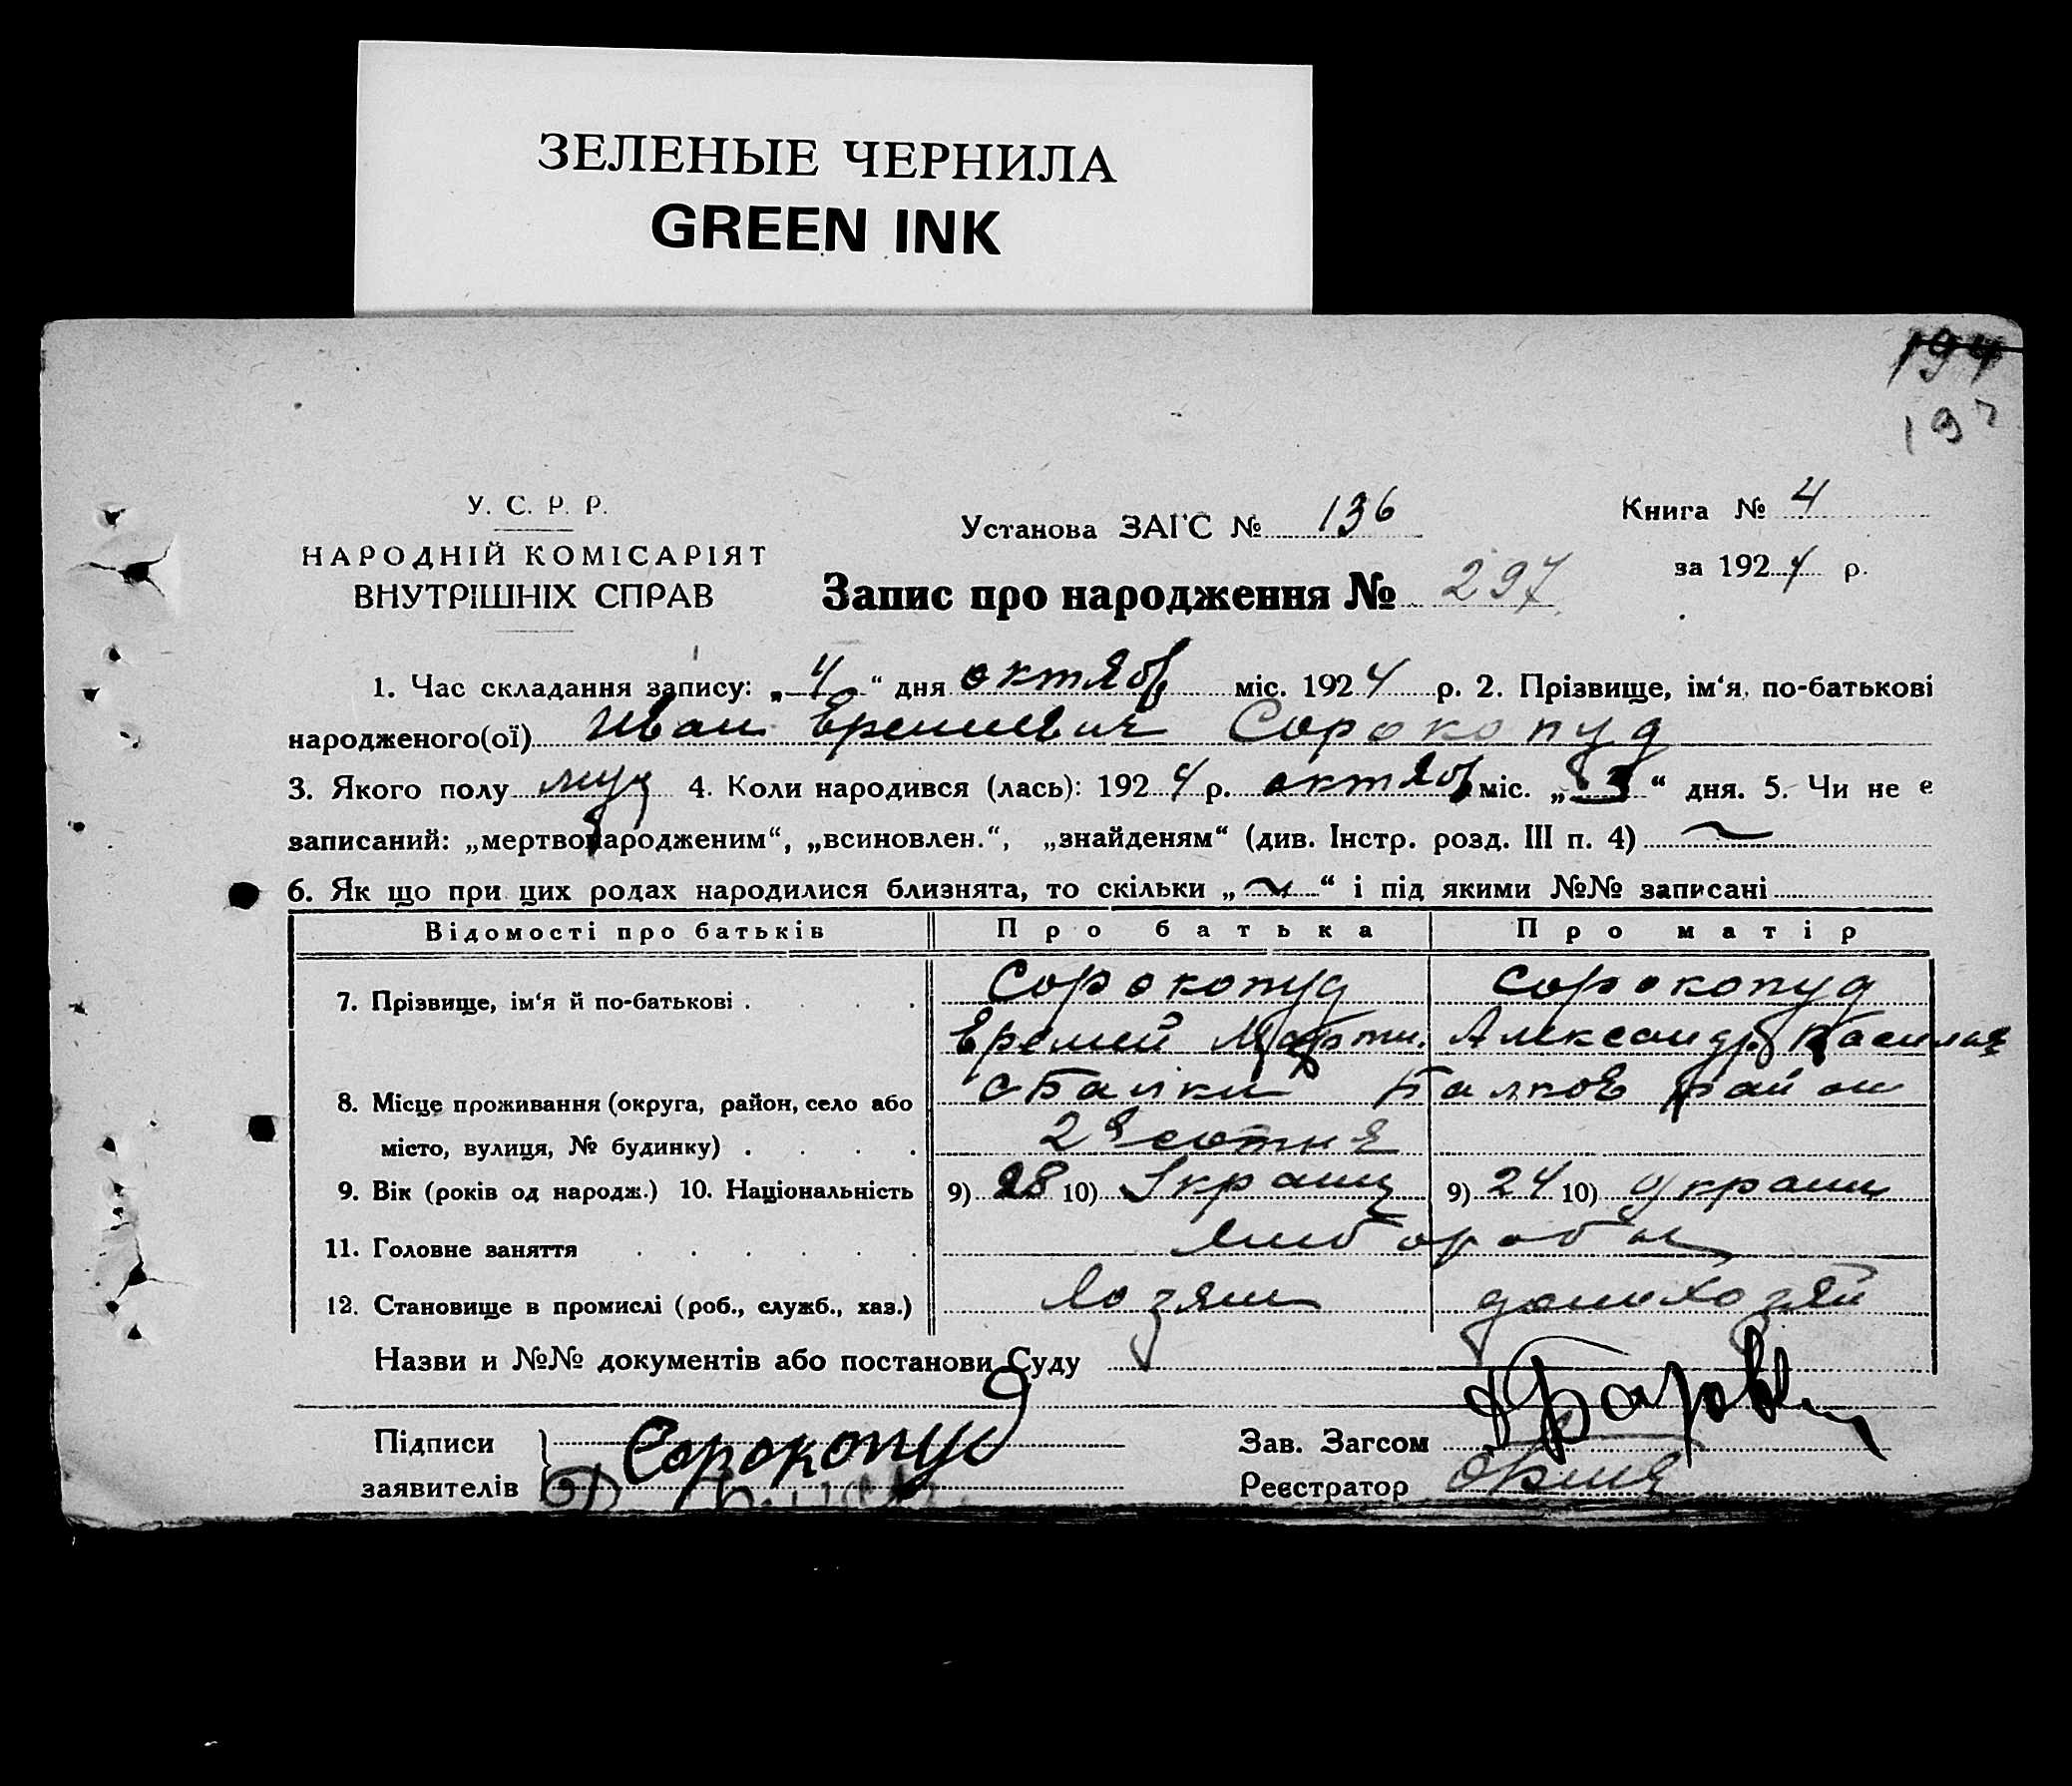 ЗЕЛЕНЫЕ ЧЕРНИЛА
GREEN INK
194
197
У. С. Р. Р.
НАРОДНІЙ КОМІСАРІЯТ
ВНУТРІШНІХ СПРАВ
Установа ЗАГС № 136
Книга № 4
за 1924 р.
Запис про народження № 297
1. Час складання запису: „4“ дня октяб міс. 1924 р. 2. Прізвище, ім‘я, по-батькові
народженого(ої) Иван Еремиевич Сорокопуд
3. Якого полу муж 4. Коли народився (лась): 1924 р. октяб міс. „3“ дня. 5. Чи не е
записаний: „мертвонародженим“, „всиновлен.“, „знайденям“ (див. Інстр. розд. III п. 4)
6. Як що при цих родах народилися близнята, то скільки „ “ і під якими №№ записані
Відомості про батьків Про батька Про матір
7. Прізвище, ім‘я й по-батькові . Сорокопуд Сорокопуд
Еремей Март. Александр.
8. Місце проживання (округа, район, село або с Балки Балков район
місто, вулиця, № будинку) . 2я сотня
9. Вік (років од народж.) 10. Національність 9) 28 10) Украин 9) 24 10) Украин
11. Головне заняття хлибороби
12. Становище в промислі (роб., служб., хаз.) хозяин домохозяй
Назви и №№ документів або постанови Суду
Підписи Сорокопуд
заявителів
Зав. Загсом
Реєстратор